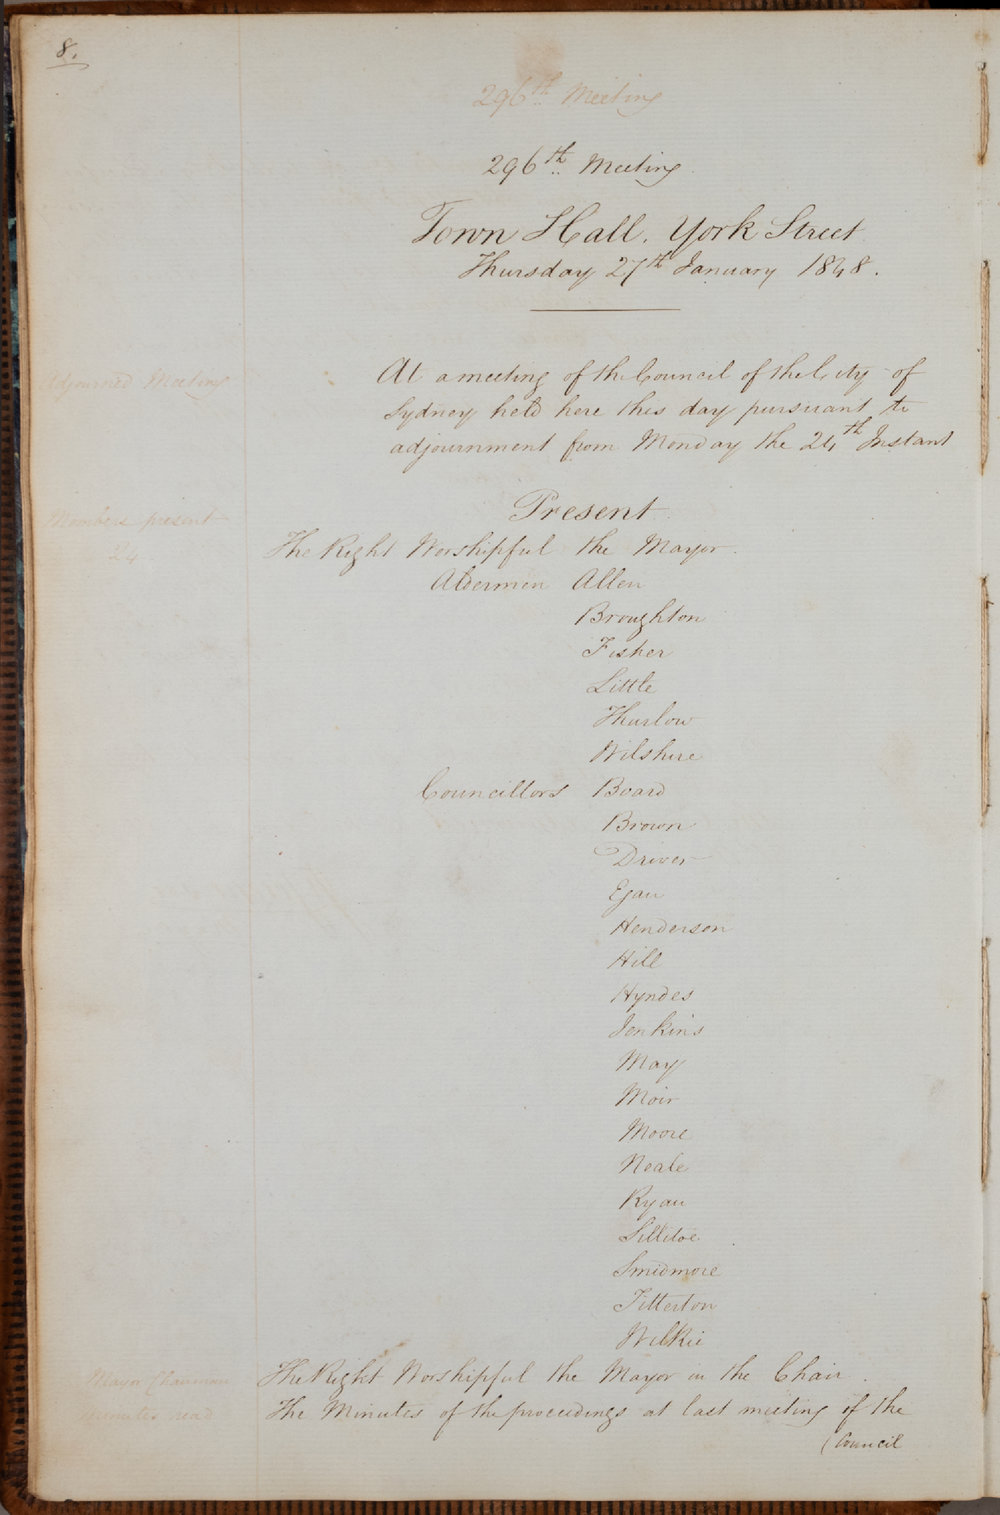 8.
296th Meeting
296th Meeting
Town Hall. York Street
Thursday 27th January 1848.
Adjourned Meeting
At a meeting of the Council of the City of
Sydney held here this day pursuant to
adjournment from Monday the 24th Instant
Present
Members present
24
The Right Worshipful the Mayor.
Aldermen Allen
Broughton
Fisher
Little
Thurlow
Wilshire
Councillors Board
Brown
Driver
Egan
Henderson
Hill
Hyndes
Jenkins
May
Moir
Moore
Neale
Ryan
Sillitoe
Smidmore
Titterton
Wilkie
Mayor Chairman
The Right Worshipful the Mayor in the Chair.
Minutes read
The Minutes of the proceedings at last meeting of the
(Council